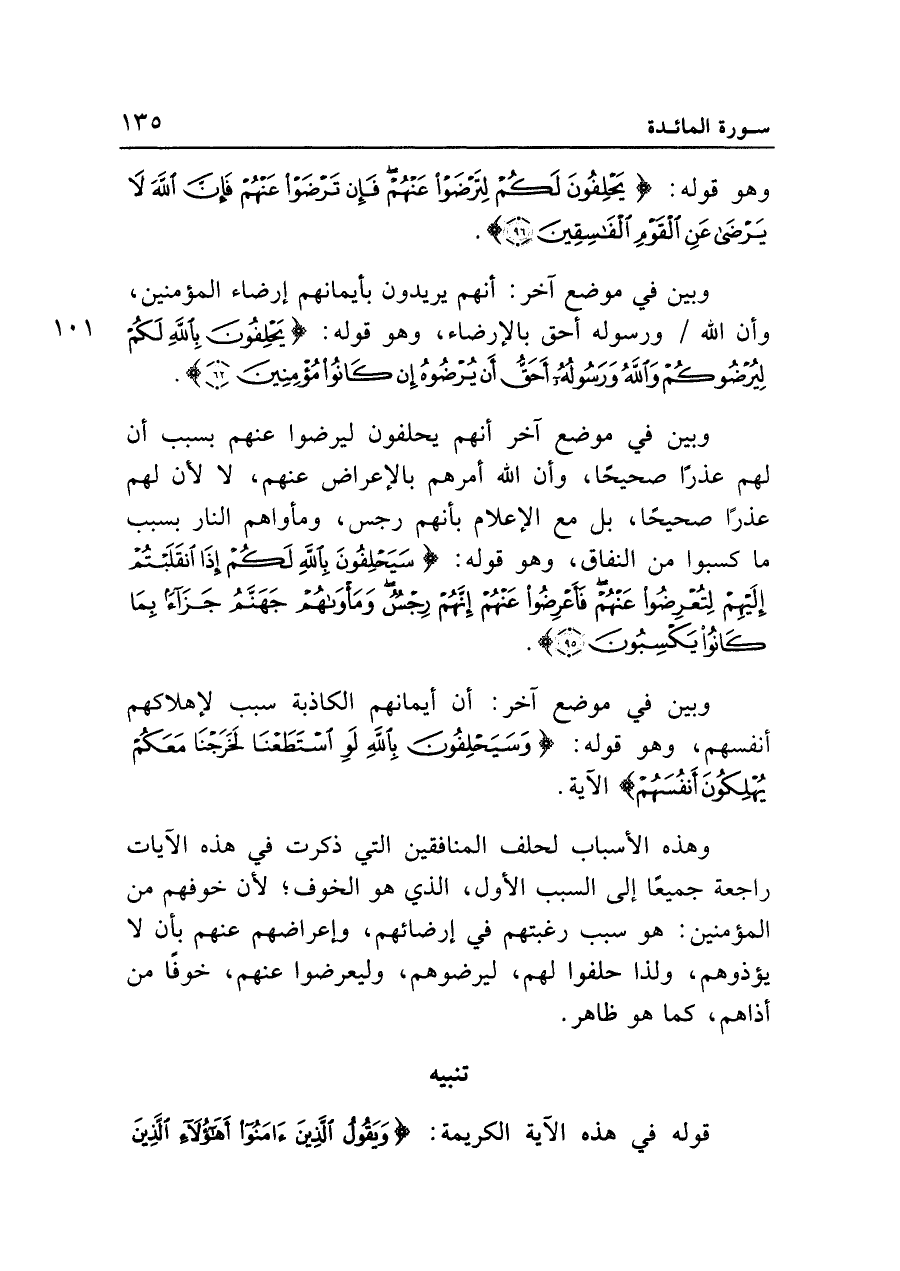 سورة المائدة ١٣٥
وهو قوله: ﴿يَحْلِفُونَ لَكُمْ لِتَرْضَوْا۟ عَنْهُمْ ۖ فَإِن تَرْضَوْا۟ عَنْهُمْ فَإِنَّ ٱللَّهَ لَا
يَرْضَىٰ عَنِ ٱلْقَوْمِ ٱلْفَٰسِقِينَ ٩٦﴾.
وبين في موضع آخر: أنهم يريدون بأيمانهم إرضاء المؤمنين،
وأن الله / ورسوله أحق بالإرضاء، وهو قوله: ﴿يَحْلِفُونَ بِٱللَّهِ لَكُمْ ١٠١
لِيُرْضُوكُمْ وَٱللَّهُ وَرَسُولُهُۥٓ أَحَقُّ أَن يُرْضُوهُ إِن كَانُوا۟ مُؤْمِنِينَ ٦٢﴾.
وبين في موضع آخر أنهم يحلفون ليرضوا عنهم بسبب أن
لهم عذرًا صحيحًا، وأن الله أمرهم بالإعراض عنهم، لا لأن لهم
عذرًا صحيحًا، بل مع الإعلام بأنهم رجس، ومأواهم النار بسبب
ما كسبوا من النفاق، وهو قوله: ﴿سَيَحْلِفُونَ بِٱللَّهِ لَكُمْ إِذَا ٱنقَلَبْتُمْ
إِلَيْهِمْ لِتُعْرِضُوا۟ عَنْهُمْ ۖ فَأَعْرِضُوا۟ عَنْهُمْ إِنَّهُمْ رِجْسٌ ۖ وَمَأْوَىٰهُمْ جَهَنَّمُ جَزَآءًۢ بِمَا
كَانُوا۟ يَكْسِبُونَ ٩٥﴾.
وبين في موضع آخر: أن أيمانهم الكاذبة سبب لإهلاكهم
أنفسهم، وهو قوله: ﴿وَسَيَحْلِفُونَ بِٱللَّهِ لَوِ ٱسْتَطَعْنَا لَخَرَجْنَا مَعَكُمْ
يُهْلِكُونَ أَنفُسَهُمْ﴾ الآية.
وهذه الأسباب لحلف المنافقين التي ذكرت في هذه الآيات
راجعة جميعًا إلى السبب الأول، الذي هو الخوف؛ لأن خوفهم من
المؤمنين: هو سبب رغبتهم في إرضائهم، وإعراضهم عنهم بأن لا
يؤذوهم، ولذا حلفوا لهم، ليرضوهم، وليعرضوا عنهم، خوفًا من
أذاهم، كما هو ظاهر.
تنبيه
قوله في هذه الآية الكريمة: ﴿وَيَقُولُ ٱلَّذِينَ ءَامَنُوٓا۟ أَهَٰٓؤُلَآءِ ٱلَّذِينَ